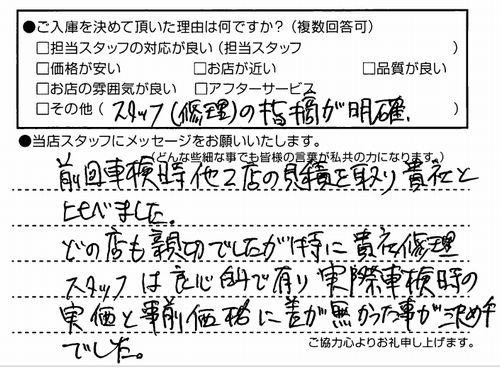 ●ご入庫を決めて頂いた理由は何ですか？(複数回答可)
□担当スタッフの対応が良い(担当スタッフ　　　　)
□価格が安い　□お店が近い　□品質が良い
□お店の雰囲気が良い□アフターサービス
□その他(スタッフ(修理)の指摘が明確.)
●当店スタッフにメッセージをお願いいたします。
(どんな些細な事でも皆様の言葉が私共の力になります。)
前回車検時他2店の見積を取り貴社と
比べました。
どの店も親切でしたが特に貴社修理
スタッフは良心的で有り実際車検時の
実価と事前価格に差が無かった事が決め手
でした。
ご協力心よりお礼申し上げます。